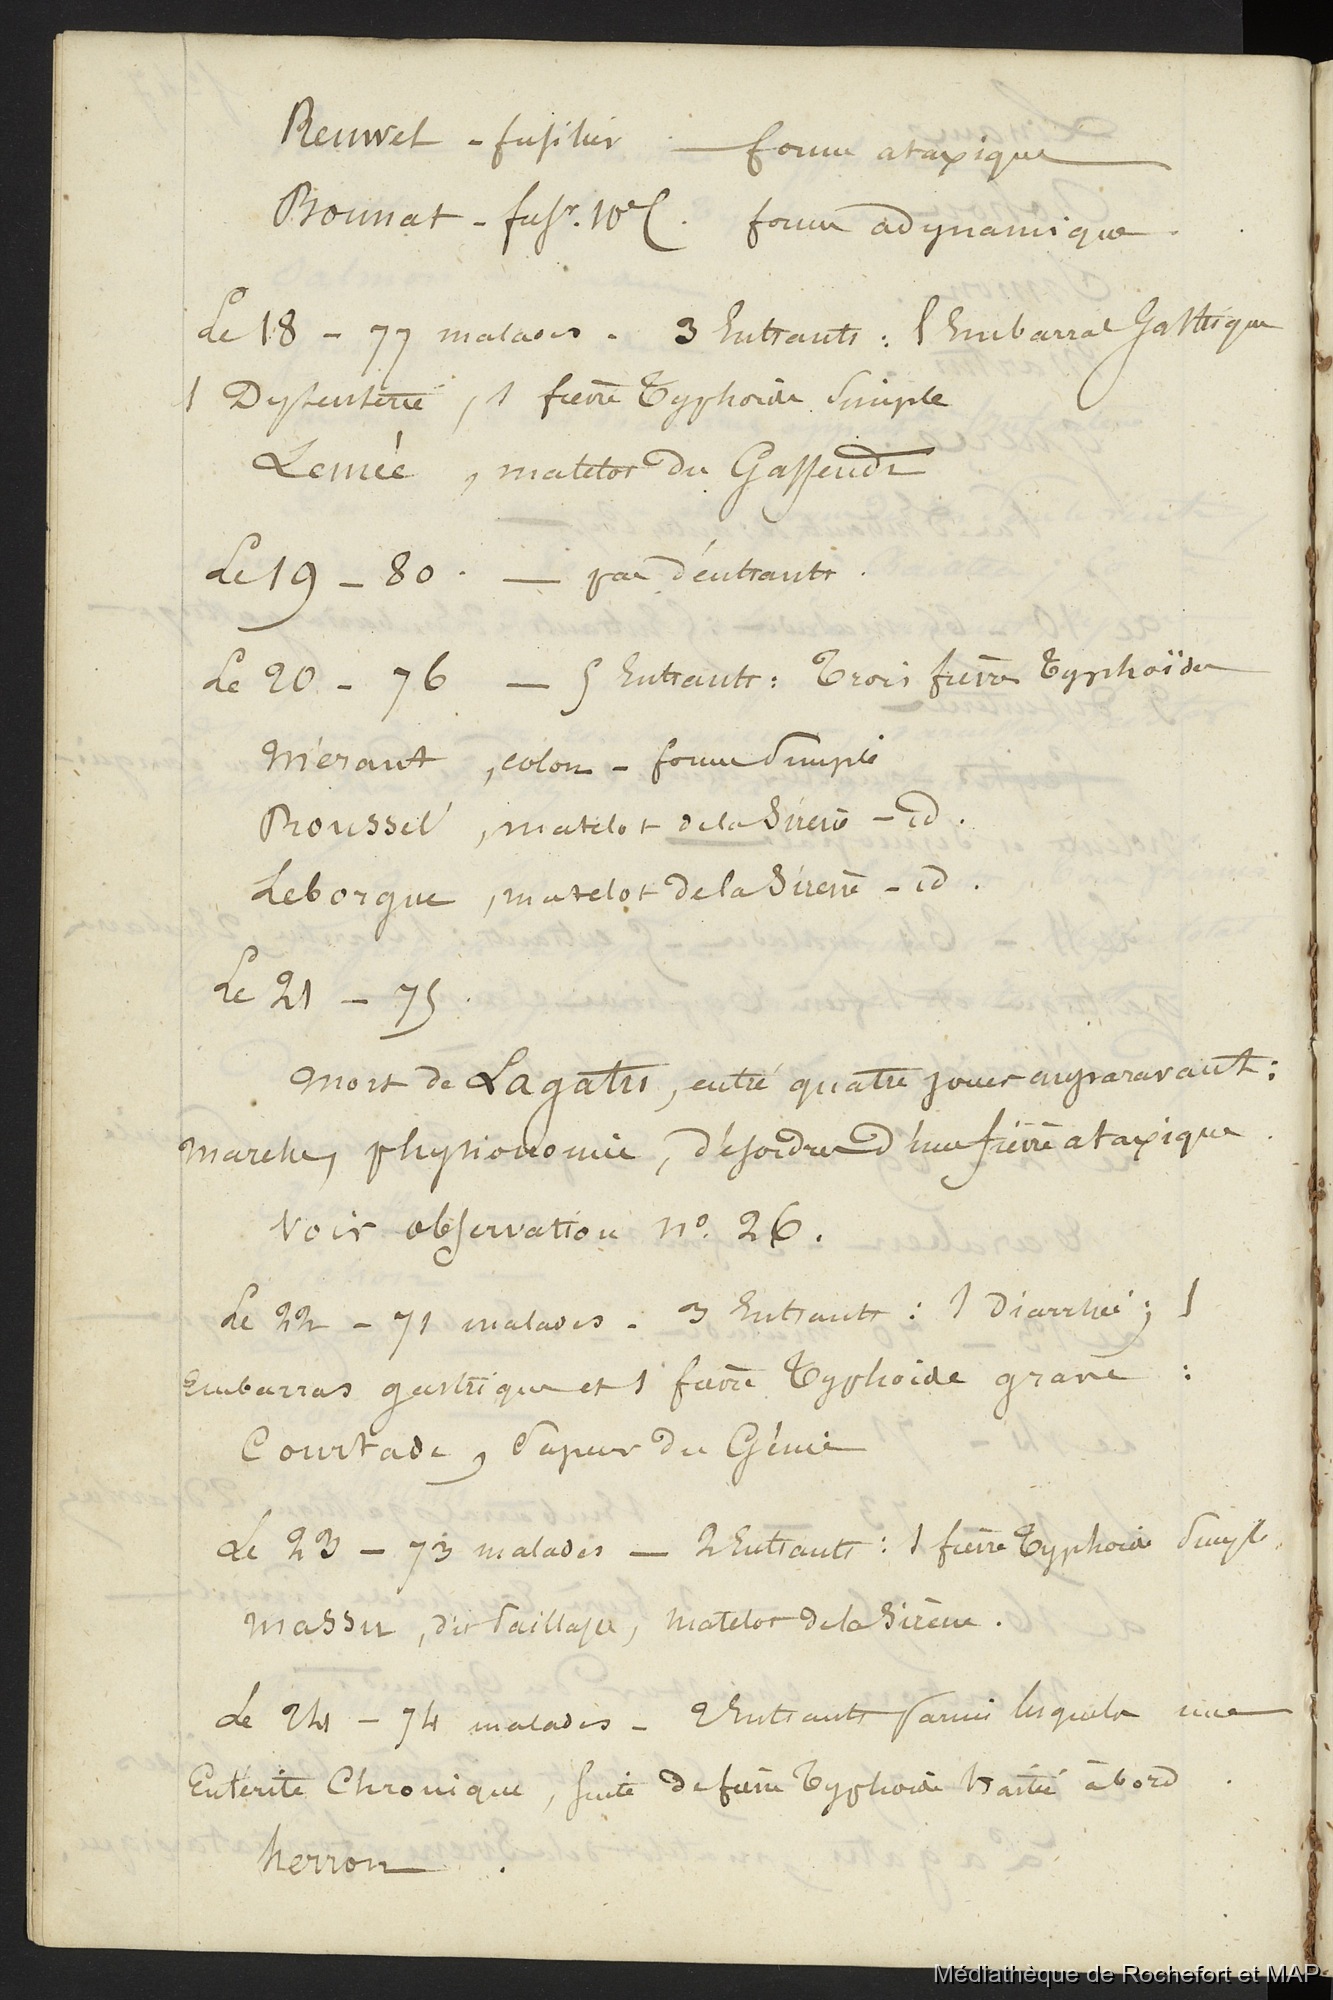 Reuwel - fusilier — forme ataxique
Bounat - fusr. forme adynamique.
Le 18 - 77 malades - 3 Entrants : 1 Embarras Gastrique
1 Dyssenterie, 1 fièvre Typhoïde Simple
Lemée, matelot du Gassendi
Le 19 - 80. — pas d'entrants.
Le 20 - 76 — 5 Entrants : Trois fièvres Typhoïdes
Mérant, colon - forme Simple
Roussel, matelot de la Sirène - id.
Leborgne, matelot de la Sirène - id.
Le 21 - 75.
Mort de Lagatu, entré quatre jours auparavant :
Marche, physionomie, désordres d'une fièvre ataxique.
Voir observation no. 26.
Le 22 - 71 malades - 3 Entrants : 1 Diarrhée ; 1
Embarras gastrique et 1 fièvre Typhoïde grave :
Courtade, Sapeur du Génie
Le 23 - 73 malades — 2 Entrants : 1 fièvre Typhoïde Simple.
Massu, dit, Matelot de la Sirène.
Le 24 - 74 malades - 2 Entrants parmi lesquels une
Entérite Chronique, suite de fièvre Typhoïde traitée à bord.
herron.
Médiathèque de Rochefort et MAP